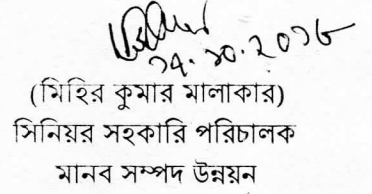 (মিহির কুমার মালাকার)
সিনিয়র সহকারি পরিচালক
মানব সম্পদ উন্নয়ন